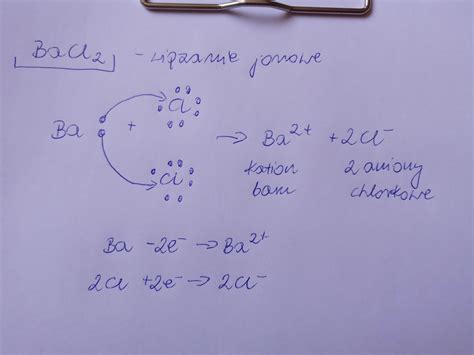 BaCl₂ - wiązanie jonowe
Cl
Ba + → Ba²⁺ + 2Cl⁻
Cl
kation 2 aniony
baru chlorkowe
Ba -2e⁻ → Ba²⁺
2Cl +2e⁻ → 2Cl⁻